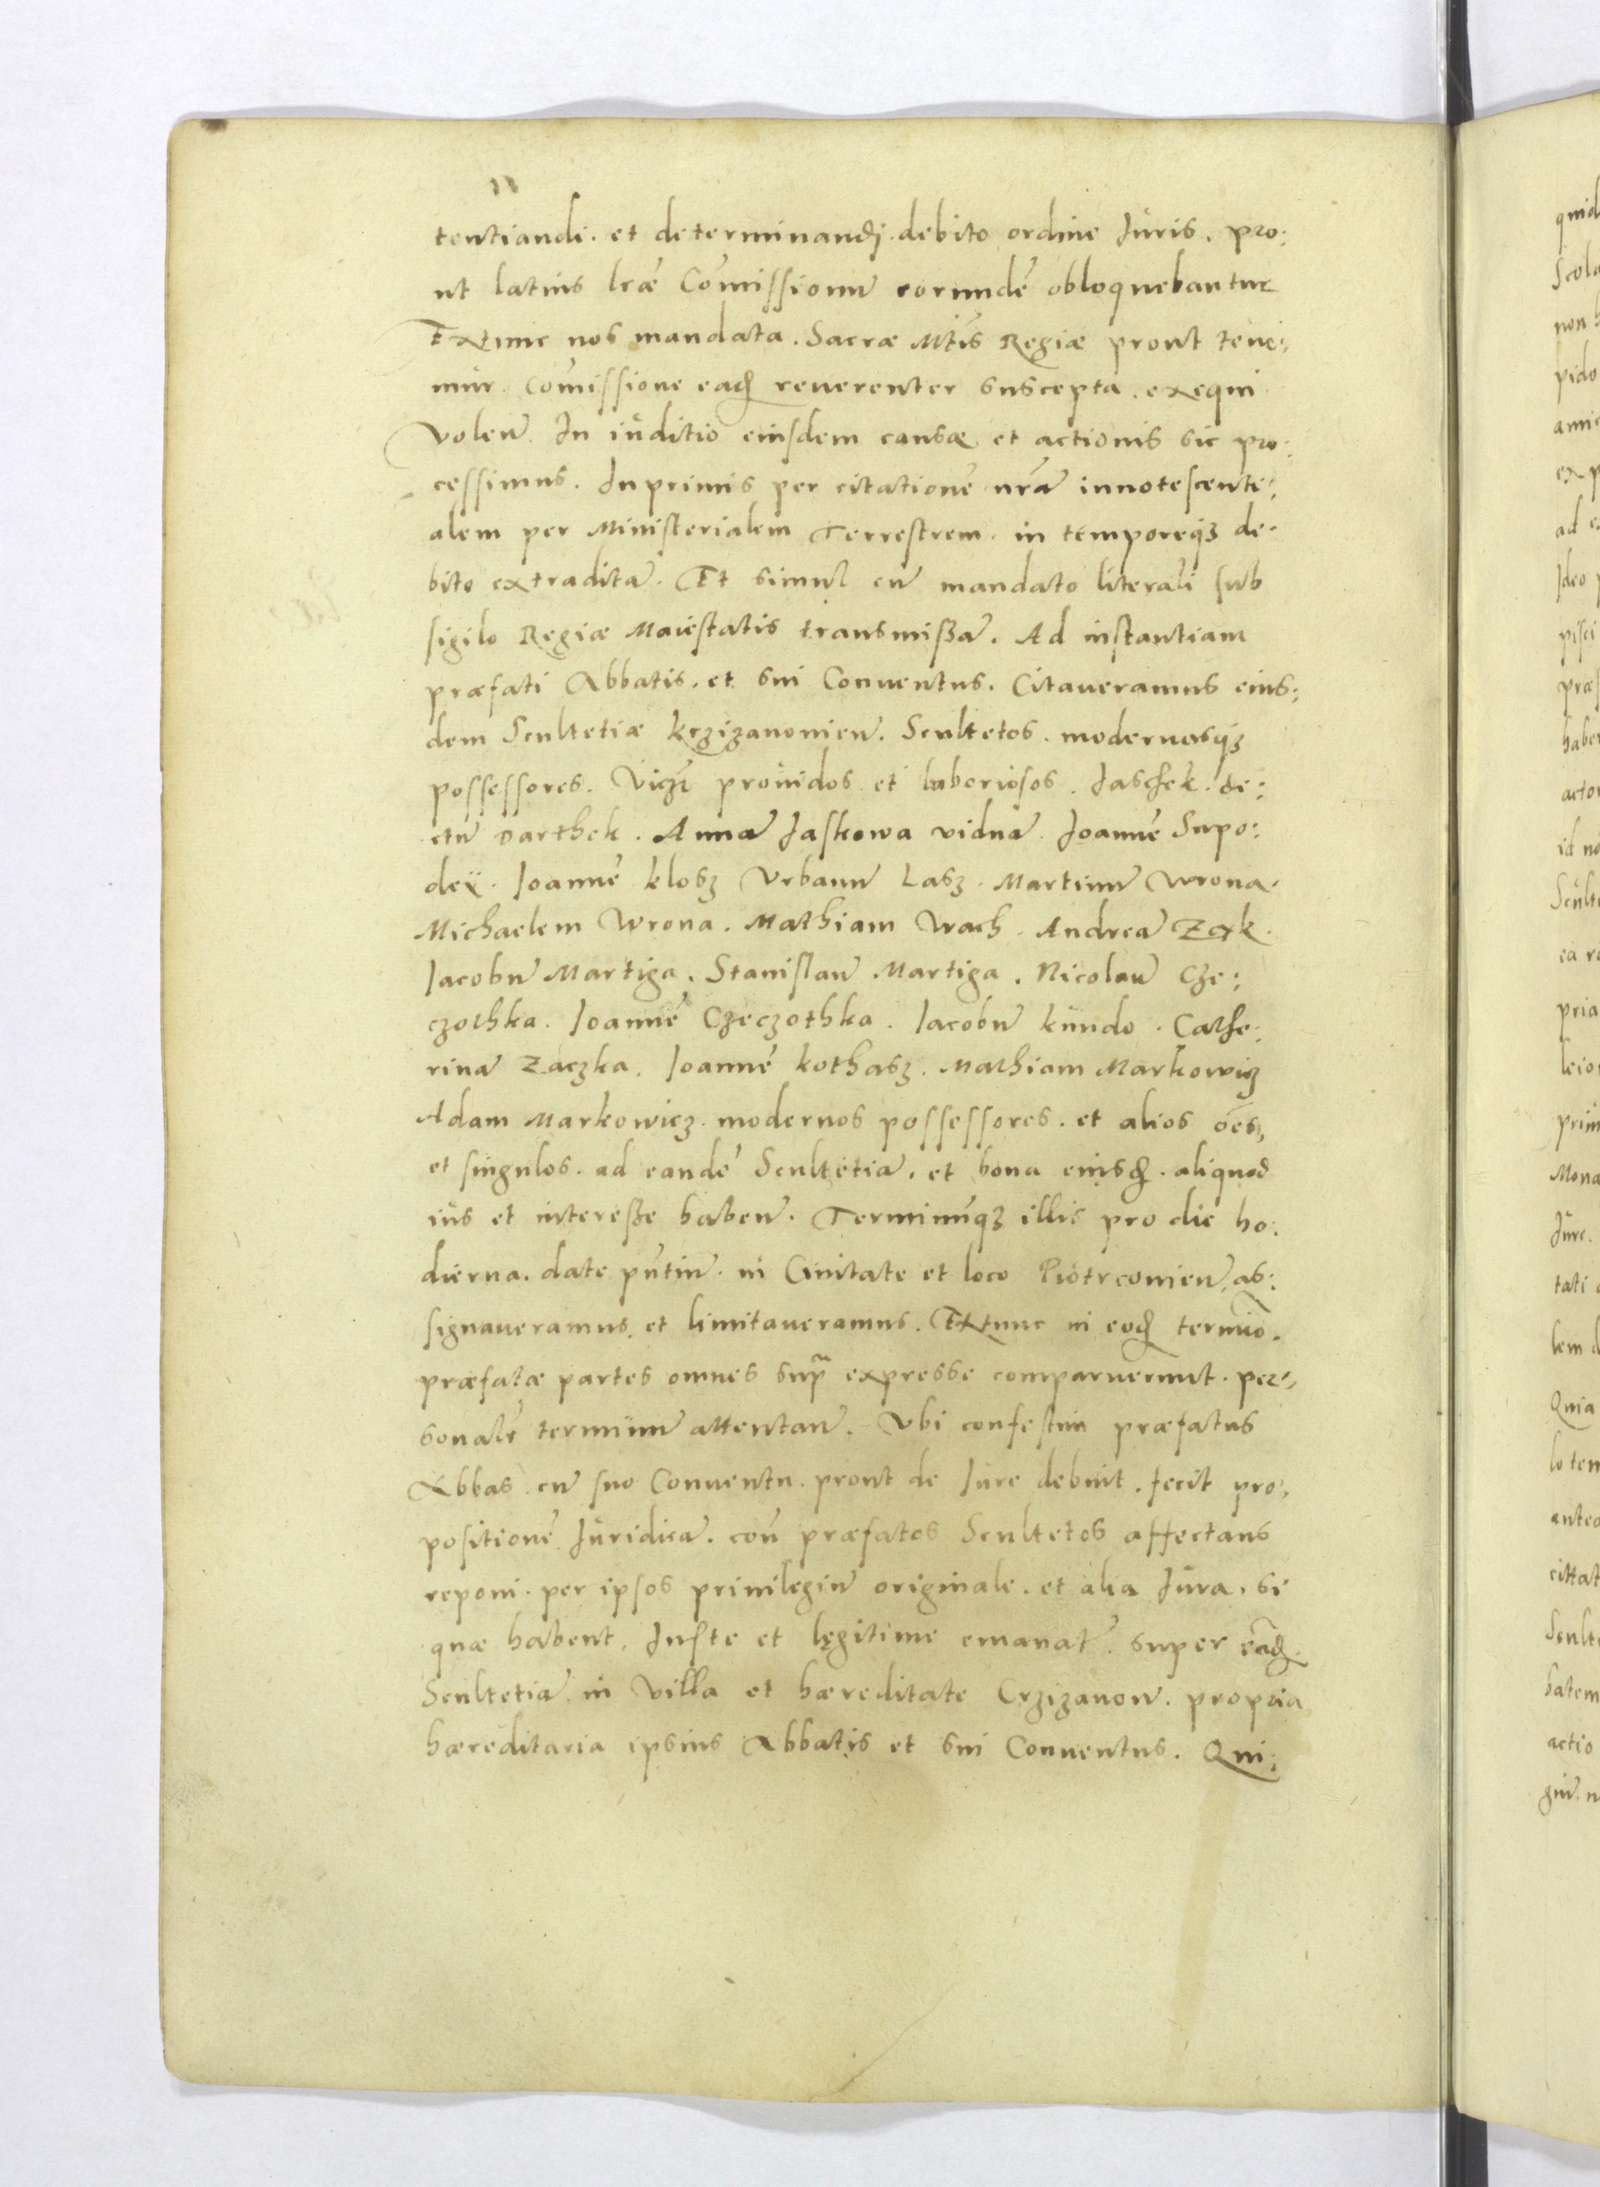 tentiandi . et determinandi . debito ordine Iuris . pro:
ut latius lr̃æ Com̃issionũ eorundẽ obloquebantur
Extunc nos mandata . Sacræ Mt̃is Regiæ prout tene:
mur Com̃issione eaḑ reuerenter suscepta . exequi
Volen̄ . In iuditio eiusdem causæ et actionis sic pro:
cessimus . Inprimis per citationẽ nr̃ã innotescenti:
alem per Ministerialem Terrestrem . in temporeqz de:
bito extraditã . Et simul cũ mandato literali sub
sigilo Regiæ Maiestatis transmißã . Ad instantiam
præfati Abbatis . et sui Conuentus . Citaueramus eius:
dem Scultetiæ krzizanonien̄ . Scultetos . modernosqz
possessores . Viczt prouidos et laboriosos . Jaschek . di:
ctũ Parthek . Annã Jaskowa viduã . Joannẽ Supo:
dey . Ioannẽ klosz Vrbanũ Lasz . Martinũ Wrona .
Michaelem Wrona . Mathiam Wach . Andreã Zok .
Iacobũ Martiga . Stanislaũ Martiga . Nicolaũ Cze:
czothka . Ioannẽ Czeczothka . Iacobũ kundo . Cathe:
rinã Zaczka . Ioannẽ kothasz . Mathiam Markowicz
Adam Markowicz . modernos possessores . et alios oẽs,
et singulos . ad eandẽ Scultetiã . et bona eiusḑ . aliquod
ius et intereße haben̄ . Terminũqz illis pro die ho:
dierna . date pñtiũ . in Ciuitate et loco Piotrconien̄ . as:
signaueramus . et limitaueramus . Extunc in eoḑ termĩo .
præfatæ partes omnes supr̃ expresse comparuerunt . per:
sonalr̃ terminũ attentan̄ . Vbi confestim præfatus
Abbas . cũ suo Conuentu . prout de Iure debuit . fecit pro:
positionẽ Iuridicã . con̄ præfatos Scultetos affectans
reponi . per ipsos priuilegiũ originale . et alia Iura . si
quæ habent . Iuste et legitime emanat̃ . super eãḑ .
Scultetiã . in Villa et hæreditate Crzizanow . propria
hæreditaria ipsius Abbatis et sui Conuentus . Qui: